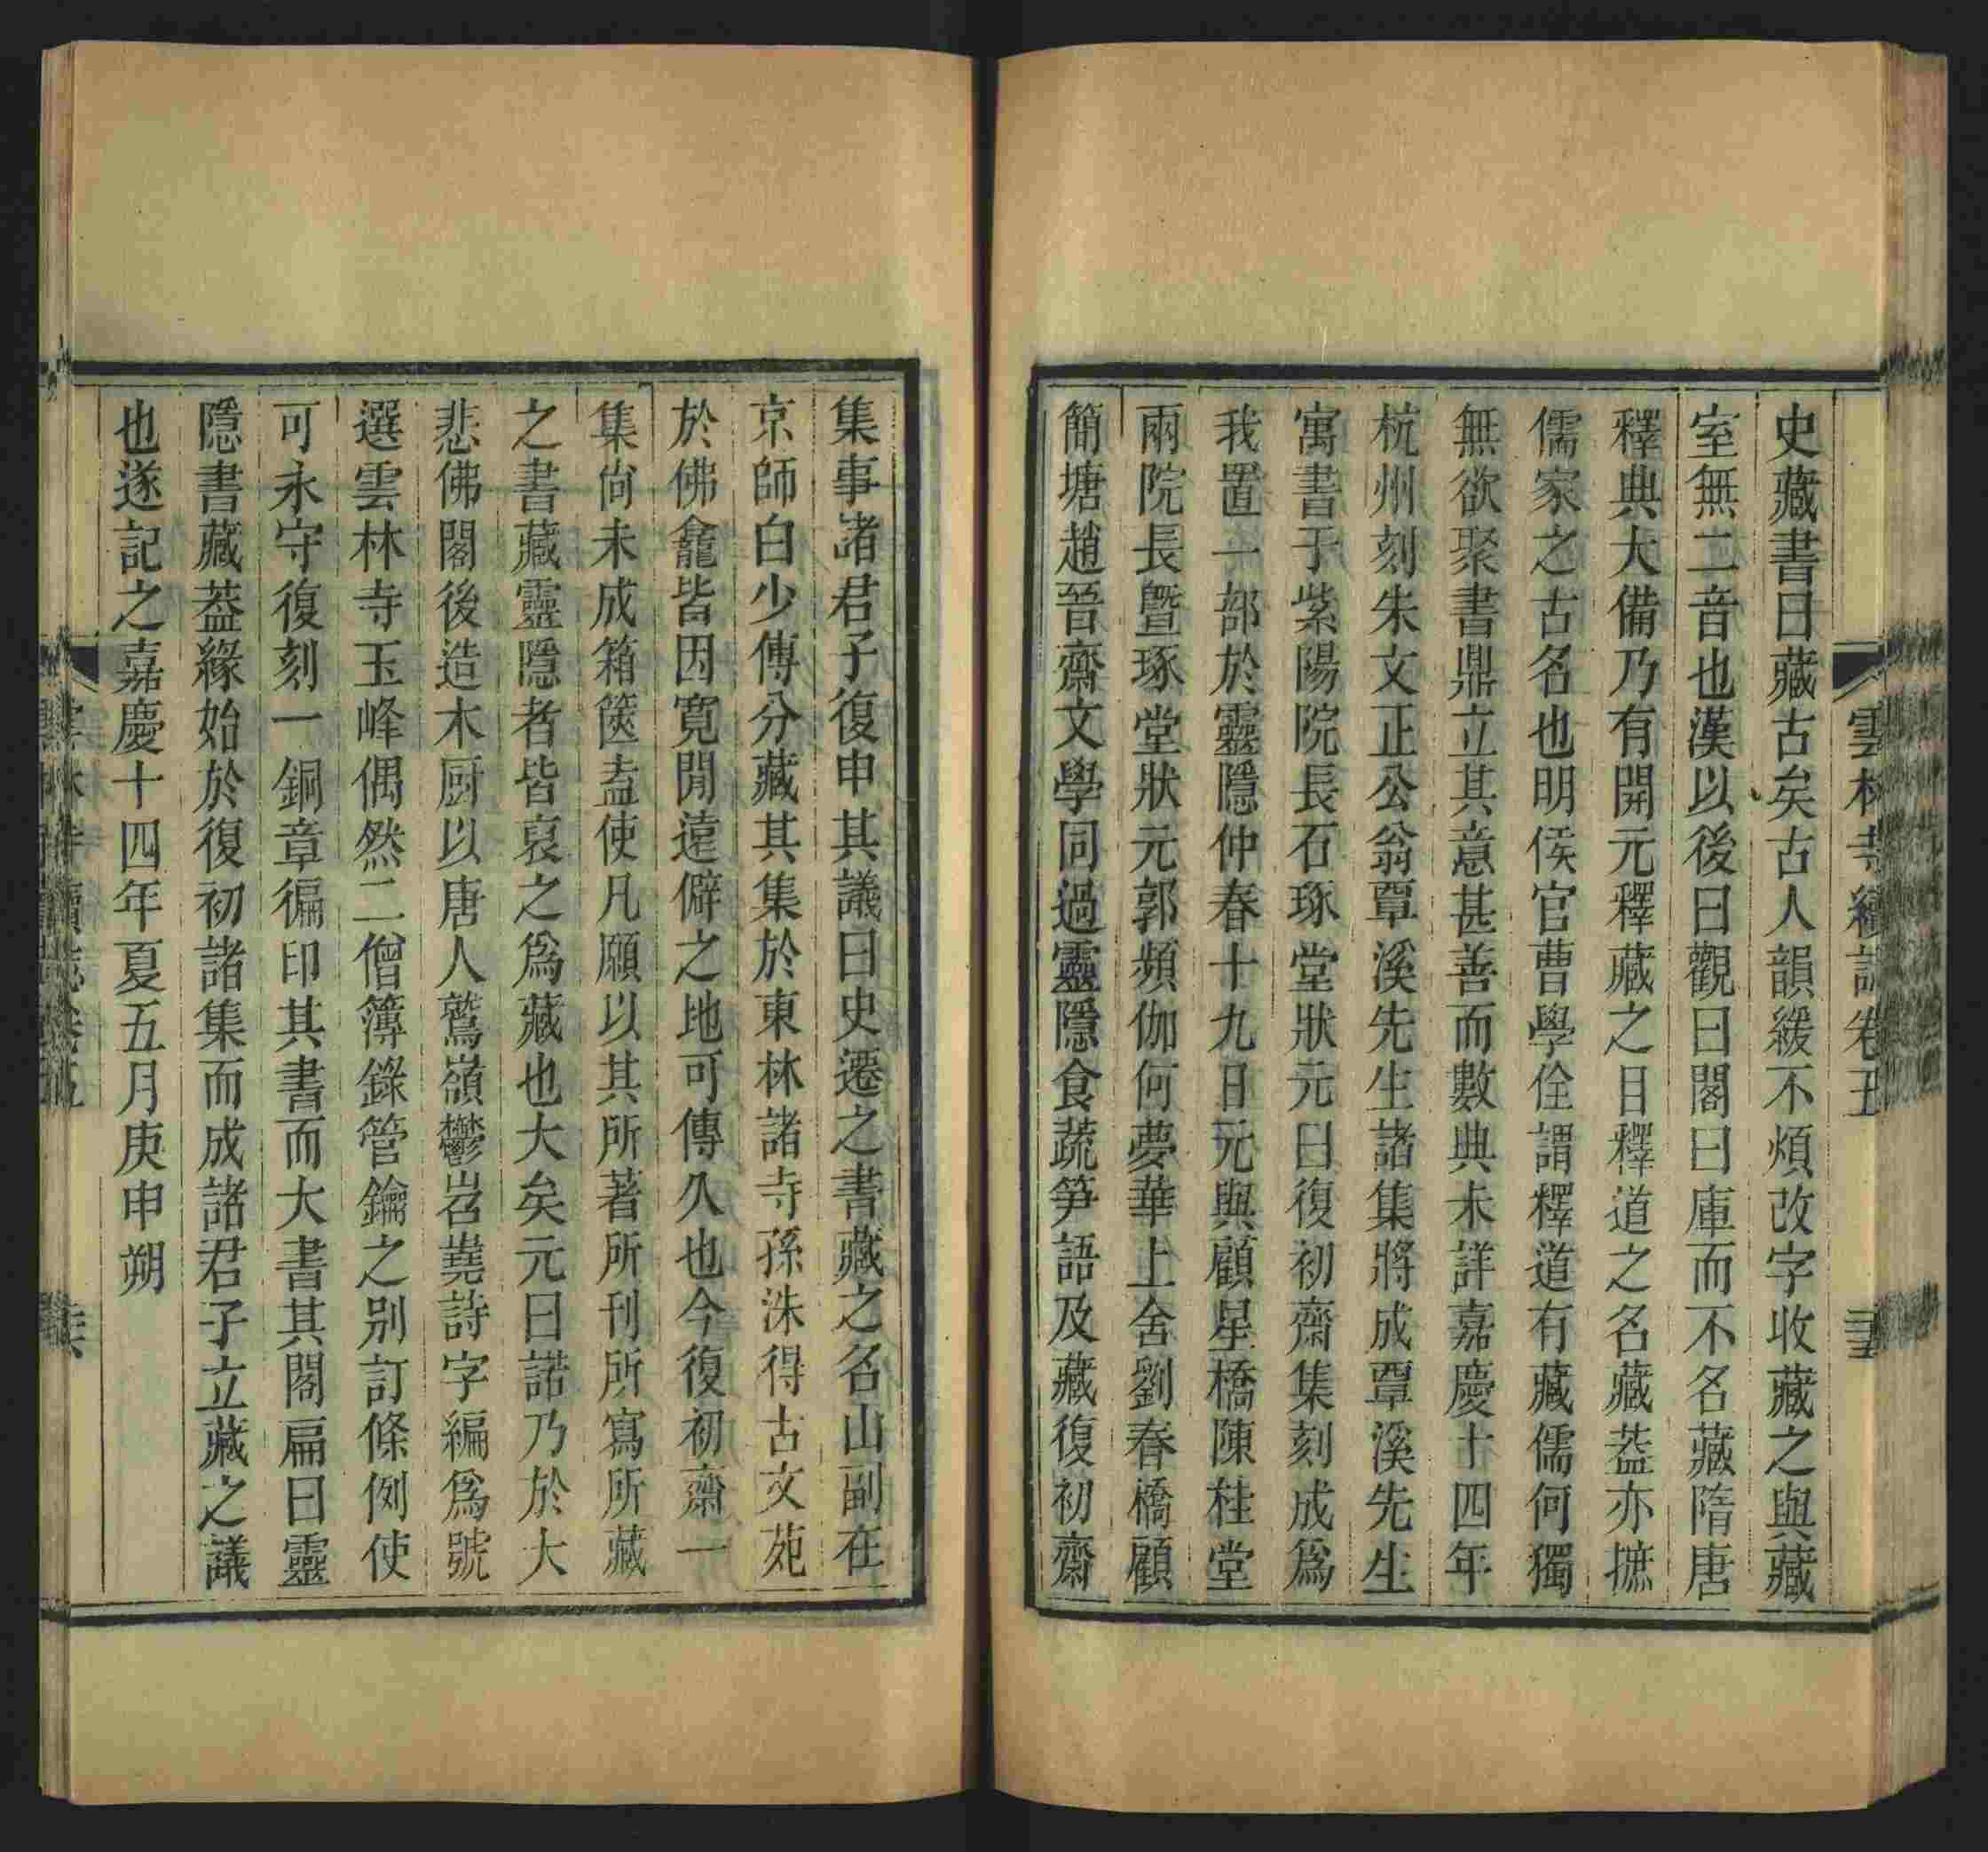 雲林寺續志卷五
史藏書曰藏古矣古人韻緩不煩改字收藏之與藏
室無二音也漢以後曰觀曰閣曰庫而不名藏隋唐
釋典大備乃有開元釋藏之目釋道之名藏葢亦摭
儒家之古名也明侯官曹學佺謂釋道有藏儒何獨
無欲聚書鼎立其意甚善而數典未詳嘉慶十四年
杭州刻朱文正公翁覃溪先生諸集將成覃溪先生
寓書于紫陽院長石琢堂狀元曰復初齋集刻成爲
我置一部於靈隱仲春十九日元與顧星橋陳桂堂
兩院長曁琢堂狀元郭頻伽何夢華上舍劉春橋顧
簡塘趙晉齋文學同過靈隱食蔬笋語及藏復初齋
集事諸君子復申其議曰史遷之書藏之名山副在
京師白少傅分藏其集於東林諸寺孫洙得古文苑
於佛龕皆因寛閒遠僻之地可傳久也今復初齋一
集尙未成箱篋盍使凡願以其所著所刊所寫所藏
之書藏靈隱者皆裒之爲藏也大矣元曰諾乃於大
悲佛閣後造木厨以唐人鷲嶺鬱岧嶤詩字編爲號
選雲林寺玉峰偶然二僧簿錄管鑰之别訂條例使
可永守復刻一銅章徧印其書而大書其閣扁曰靈
隱書藏葢緣始於復初諸集而成諸君子立藏之議
也遂記之嘉慶十四年夏五月庚申朔